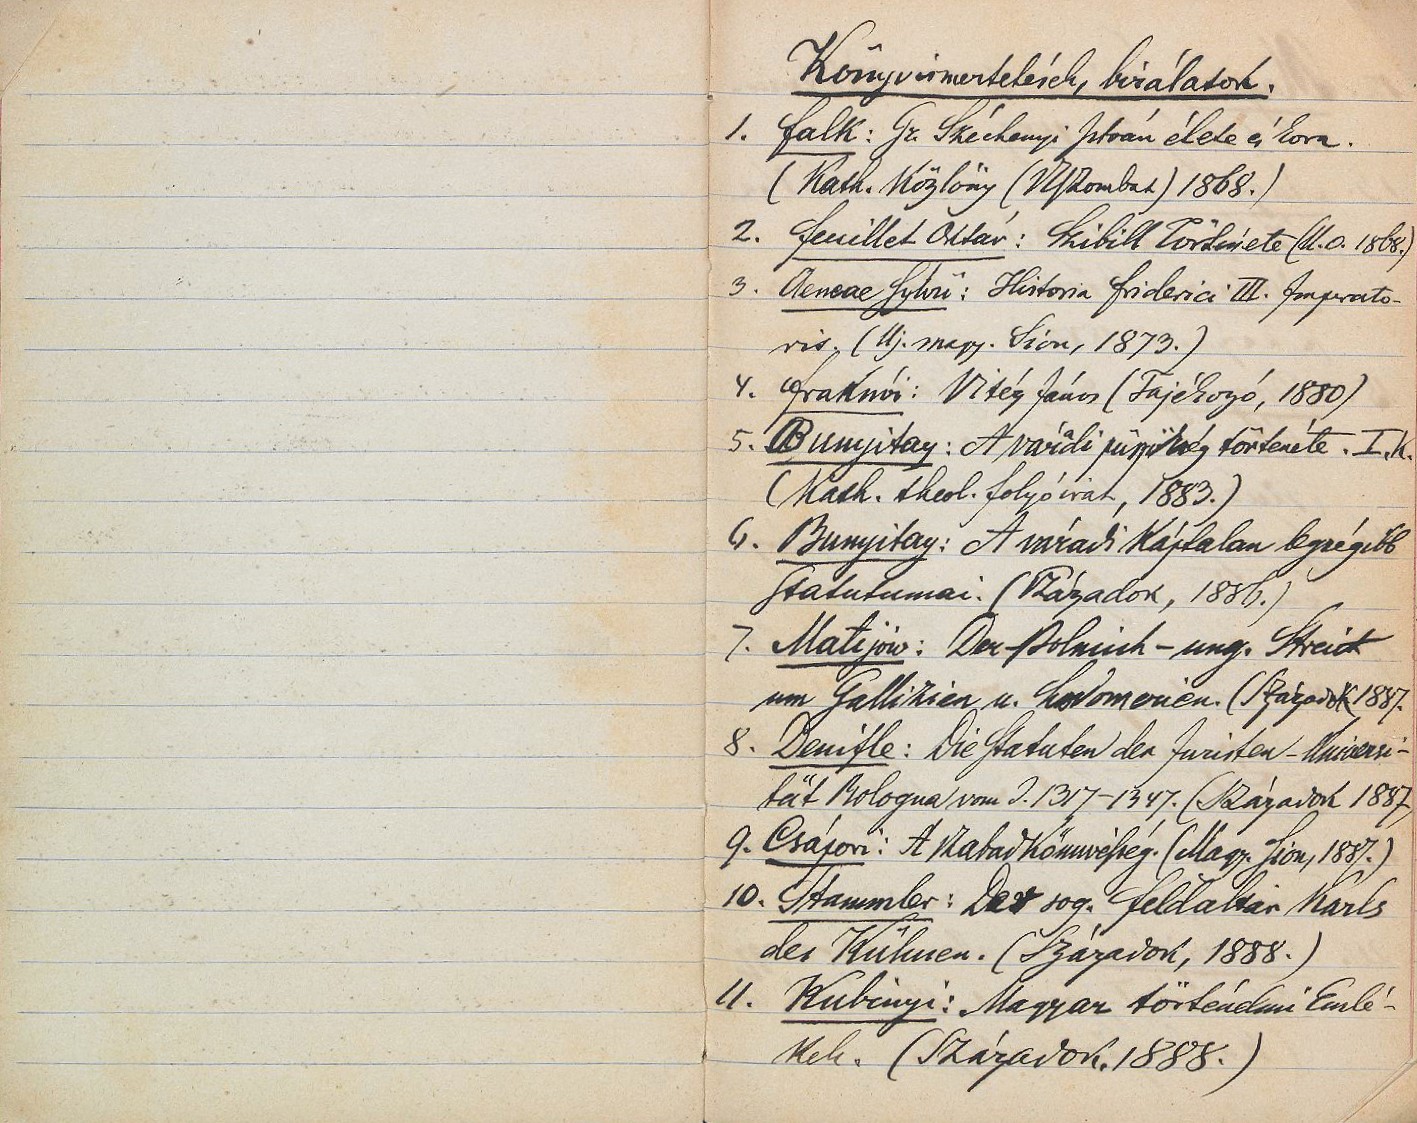 Könyvismertetések, birálatok.
1. Falk: Gr. Széchenyi István élete és kora.
(Kath. Közlöny (NSzombat) 1868.)
2. Feuillet Oktáv: Szibill Története (U.o. 1868.)
3. Aeneae Sylvii: Historia Friderici III. Imperato-
ris. (Uj. magy. Sion, 1873.)
4. Fraknói: Vitéz János (Tájékozó, 1880)
5. Bunyitay: A váradi püspökség története. I. k.
(Kath. theol. folyóirat, 1883.)
6. Bunyitay: A váradi káptalan legrégibb
Statutumai. (Századok, 1886.)
7. Matijów: Der Polnisch-ung. Streit
um Gallizien u. Lodomerien. (Századok 1887.
8. Denifle: Die Statuten der Juristen-Universi-
tät Bologna vom J. 1317-1347. (Századok 1887
9. Csápori: A szabadkőművesség. (Magy. Sion, 1887.)
10. Stammler: Der sog. Feldaltar Karls
des Kühnen. (Századok, 1888.)
11. Kubinyi: Magyar történelmi Emlé-
kek. (Századok. 1888.)